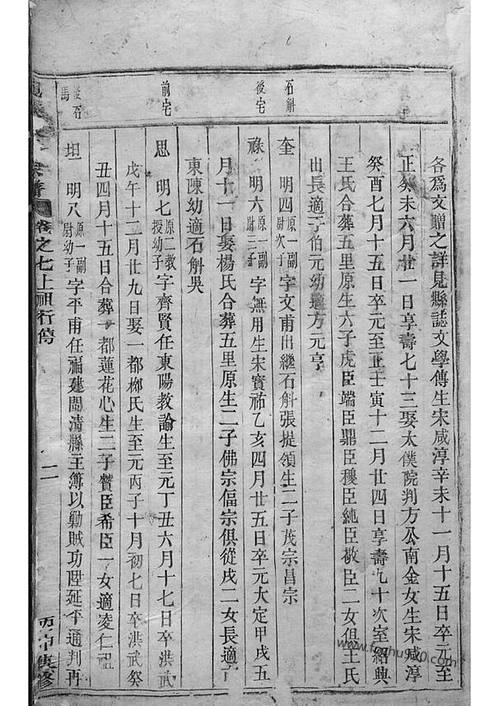 各爲文贈之詳見縣誌文學傳生宋咸淳辛未十一月十五日卒元至
正癸未六月廿一日享壽七十三娶太僕院判方公南金女生宋咸淳
癸酉七月十五日卒元至正壬寅十二月廿四日享壽九十次室紹興
王氏合葬五里原生六子虎臣端臣鼎臣稷臣純臣敬臣二女俱王氏
出長適于伯元幼適方元亨
石斛
奎 明四原一副尉次子字文甫出繼石斛張提領生二子茂宗昌宗
後宅
祿 明六原一副尉三子字無用生宋寶祐乙亥四月廿五日卒元大定甲戌五
月十一日娶楊氏合葬五里原生二子佛宗偪宗俱從戌二女長適
東陳幼適石斛吳
前宅
思 明七原二教授幼子字齊賢任東陽教諭生至元丁丑六月十七日卒洪武
戊午十二月廿九日娶一都柳氏生至元丙子十月初七日卒洪武癸
丑四月十五日合葬一都蓮花心生二子贊臣希臣一女適凌仁祖
坦 明八原一副尉幼子字平甫任福建閩清縣主簿以勦賊功陞延平通判再
卷之七上祖行傳